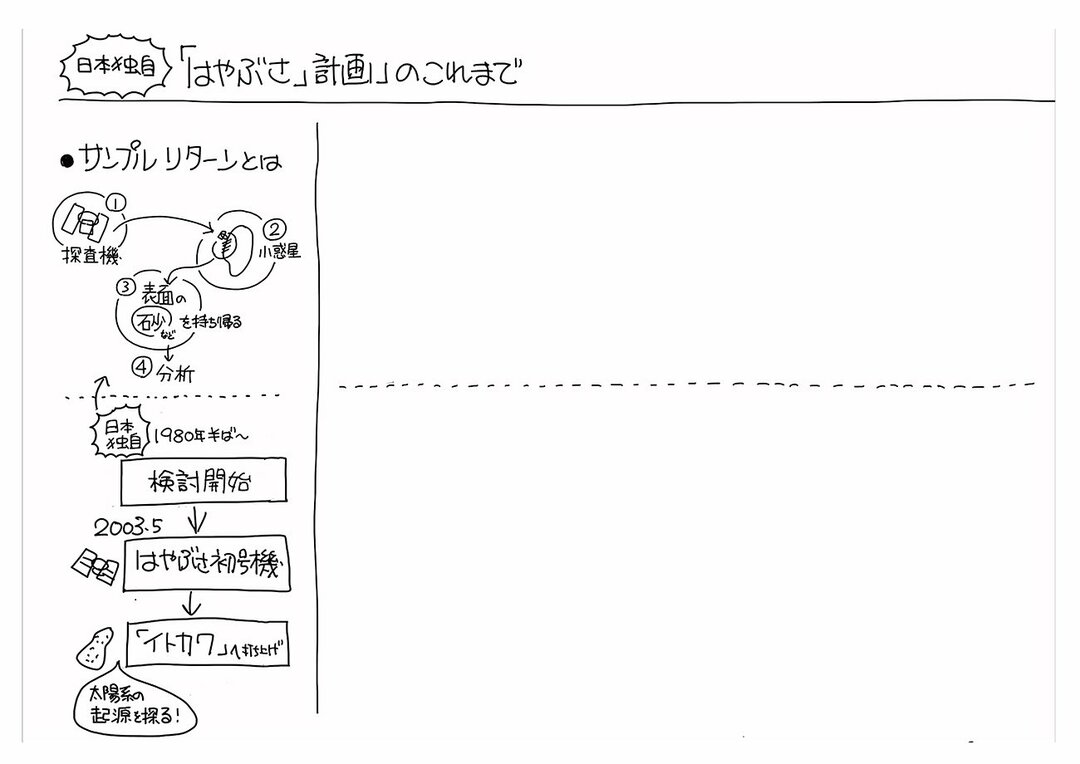 日本独自
「はやぶさ」計画」のこれまで
●サンプルリターンとは
①
探査機
②
小惑星
③
表面の
砂など
を持ち帰る
④分析
日本
独自
1980年半ば〜
検討開始
2003.5
はやぶさ初号機
「イトカワ」へ打ち上げ
太陽系の
起源を探る!